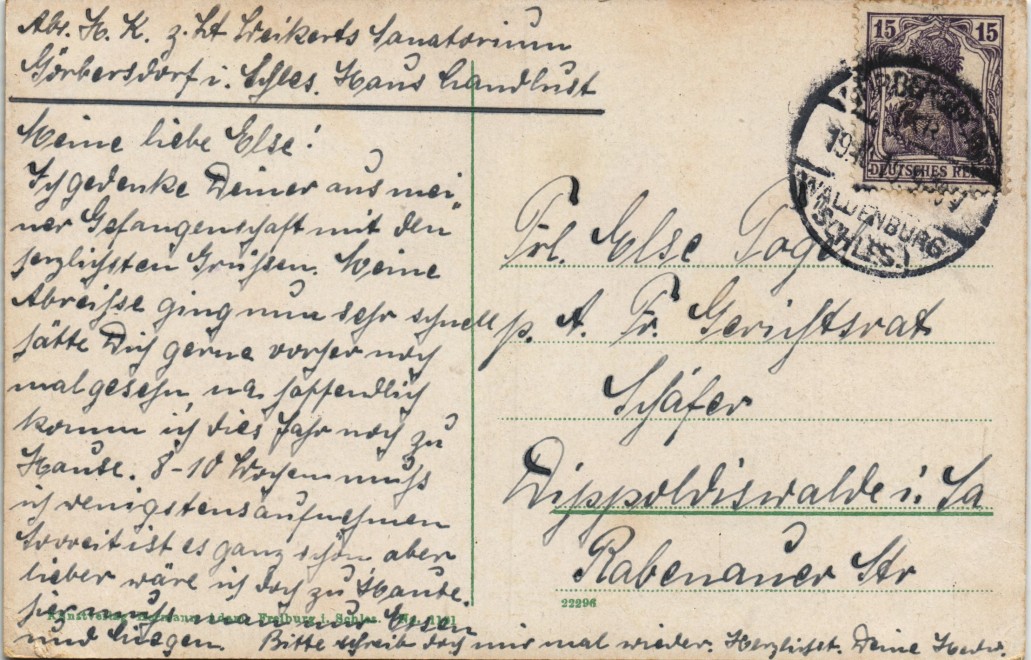 Abs. H. K. z. Zt Weikerts Sanatorium
Görbersdorf i. Schles. Haus Landlust
Meine liebe Else!
Ich gedenke Deiner aus mei-
ner Gefangenschaft mit den
herzlichsten Grüssen. Meine
Abreise ging nun sehr schnell
hätte Dich gerne vorher noch
mal gesehn na hoffendlich
komm ich dies Jahr noch zu
Hause. 8-10 Wochen muss
ich wenigstens aufnehmen
Soweit ist es ganz schön aber
lieber wäre ich doch zu Hause.
hier muss man nur Essen
und Liegen. Bitte schreib doch mir mal wieder. Herzlichst. Deine Hedw.
15 15
DEUTSCHES REICH
WALDENBURG
(SCHLES.)
Frl. Else
p. A. Fr. Gerichtsrat
Schäfer
Dippoldiswalde i. Sa
Rabenauer Str
22296
Kunstverlag Hermann Adam, Freiburg i. Schles.